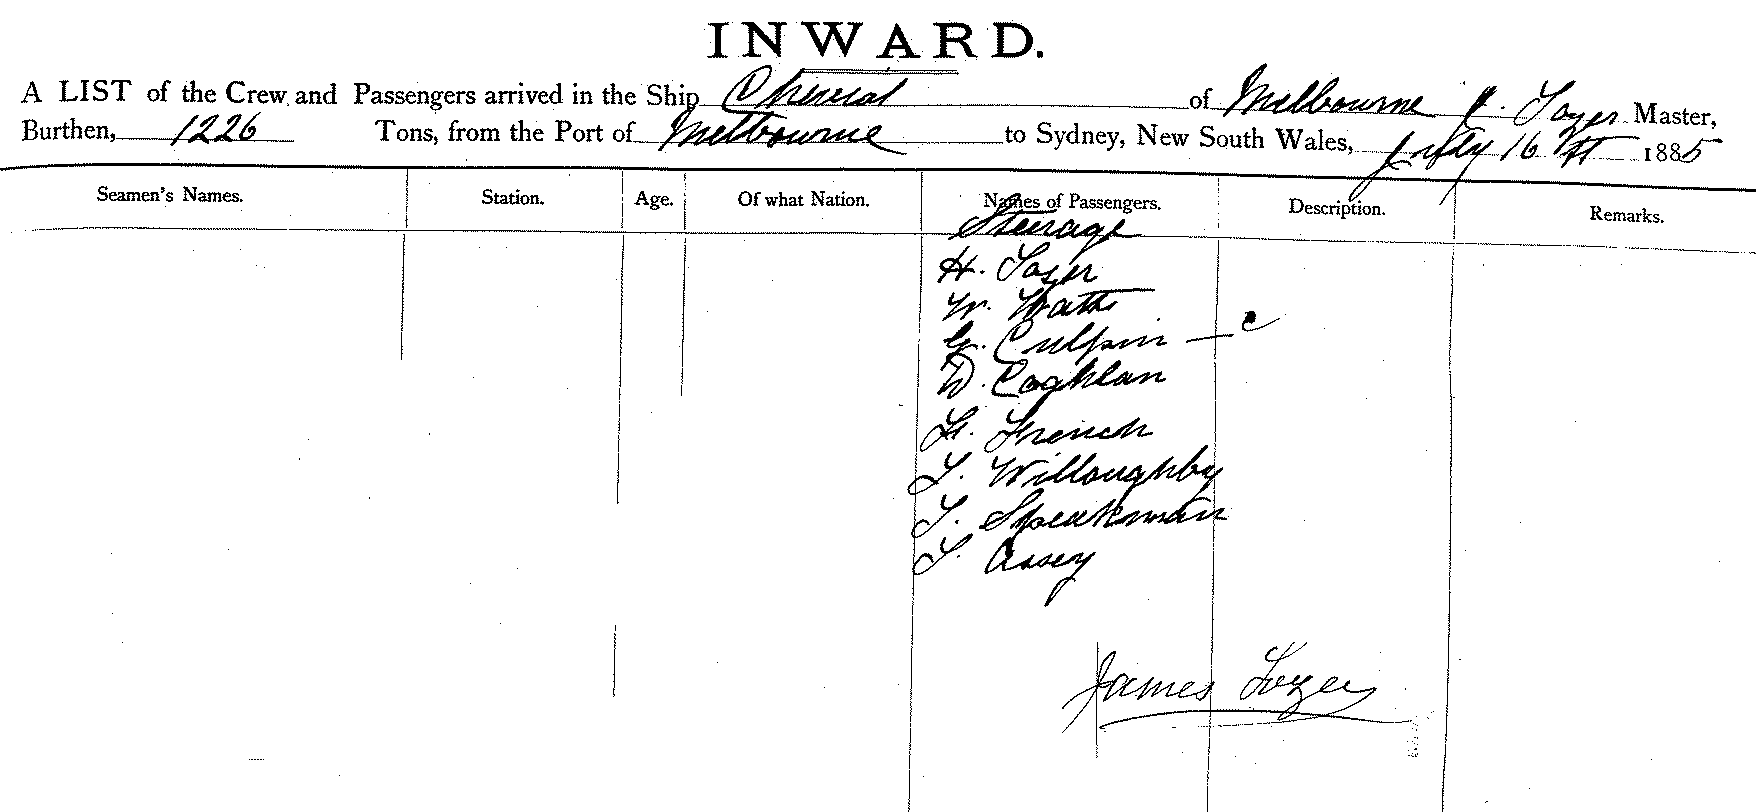 INWARD.
A LIST of the Crew and Passengers arrived in the Ship Cheviot of Melbourne J. Tozer Master,
Burthen, 1226 Tons, from the Port of Melbourne to Sydney, New South Wales, July 16th 1885
Seamen's Names. Station. Age. Of what Nation. Names of Passengers. Description. Remarks.
Steerage
H. Tozer
W. Watts
G. Culpin — c
D. Coghlan
F. French
T. Willoughby
T. Speakman
T. Assey
James Tozer